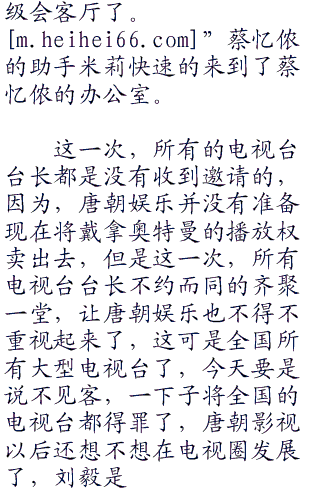 级会客厅了。
[m.heihei66.com]”蔡忆侬
的助手米莉快速的来到了蔡
忆侬的办公室。
这一次，所有的电视台
台长都是没有收到邀请的，
因为，唐朝娱乐并没有准备
现在将戴拿奥特曼的播放权
卖出去，但是这一次，所有
电视台台长不约而同的齐聚
一堂，让唐朝娱乐也不得不
重视起来了，这可是全国所
有大型电视台了，今天要是
说不见客，一下子将全国的
电视台都得罪了，唐朝影视
以后还想不想在电视圈发展
了，刘毅是